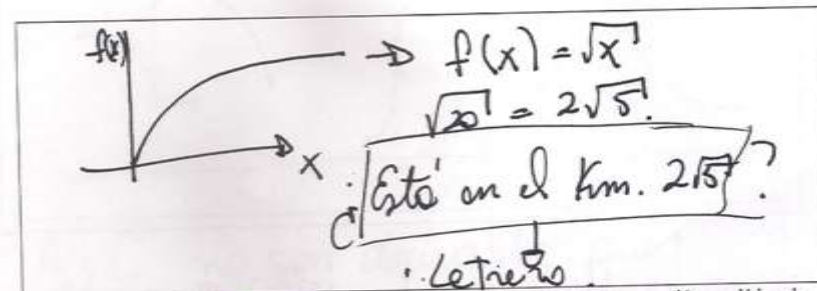 f(x)
x
f(x) = √x
√20 = 2√5
¿Está en el Km. 2√5?
Letrero.